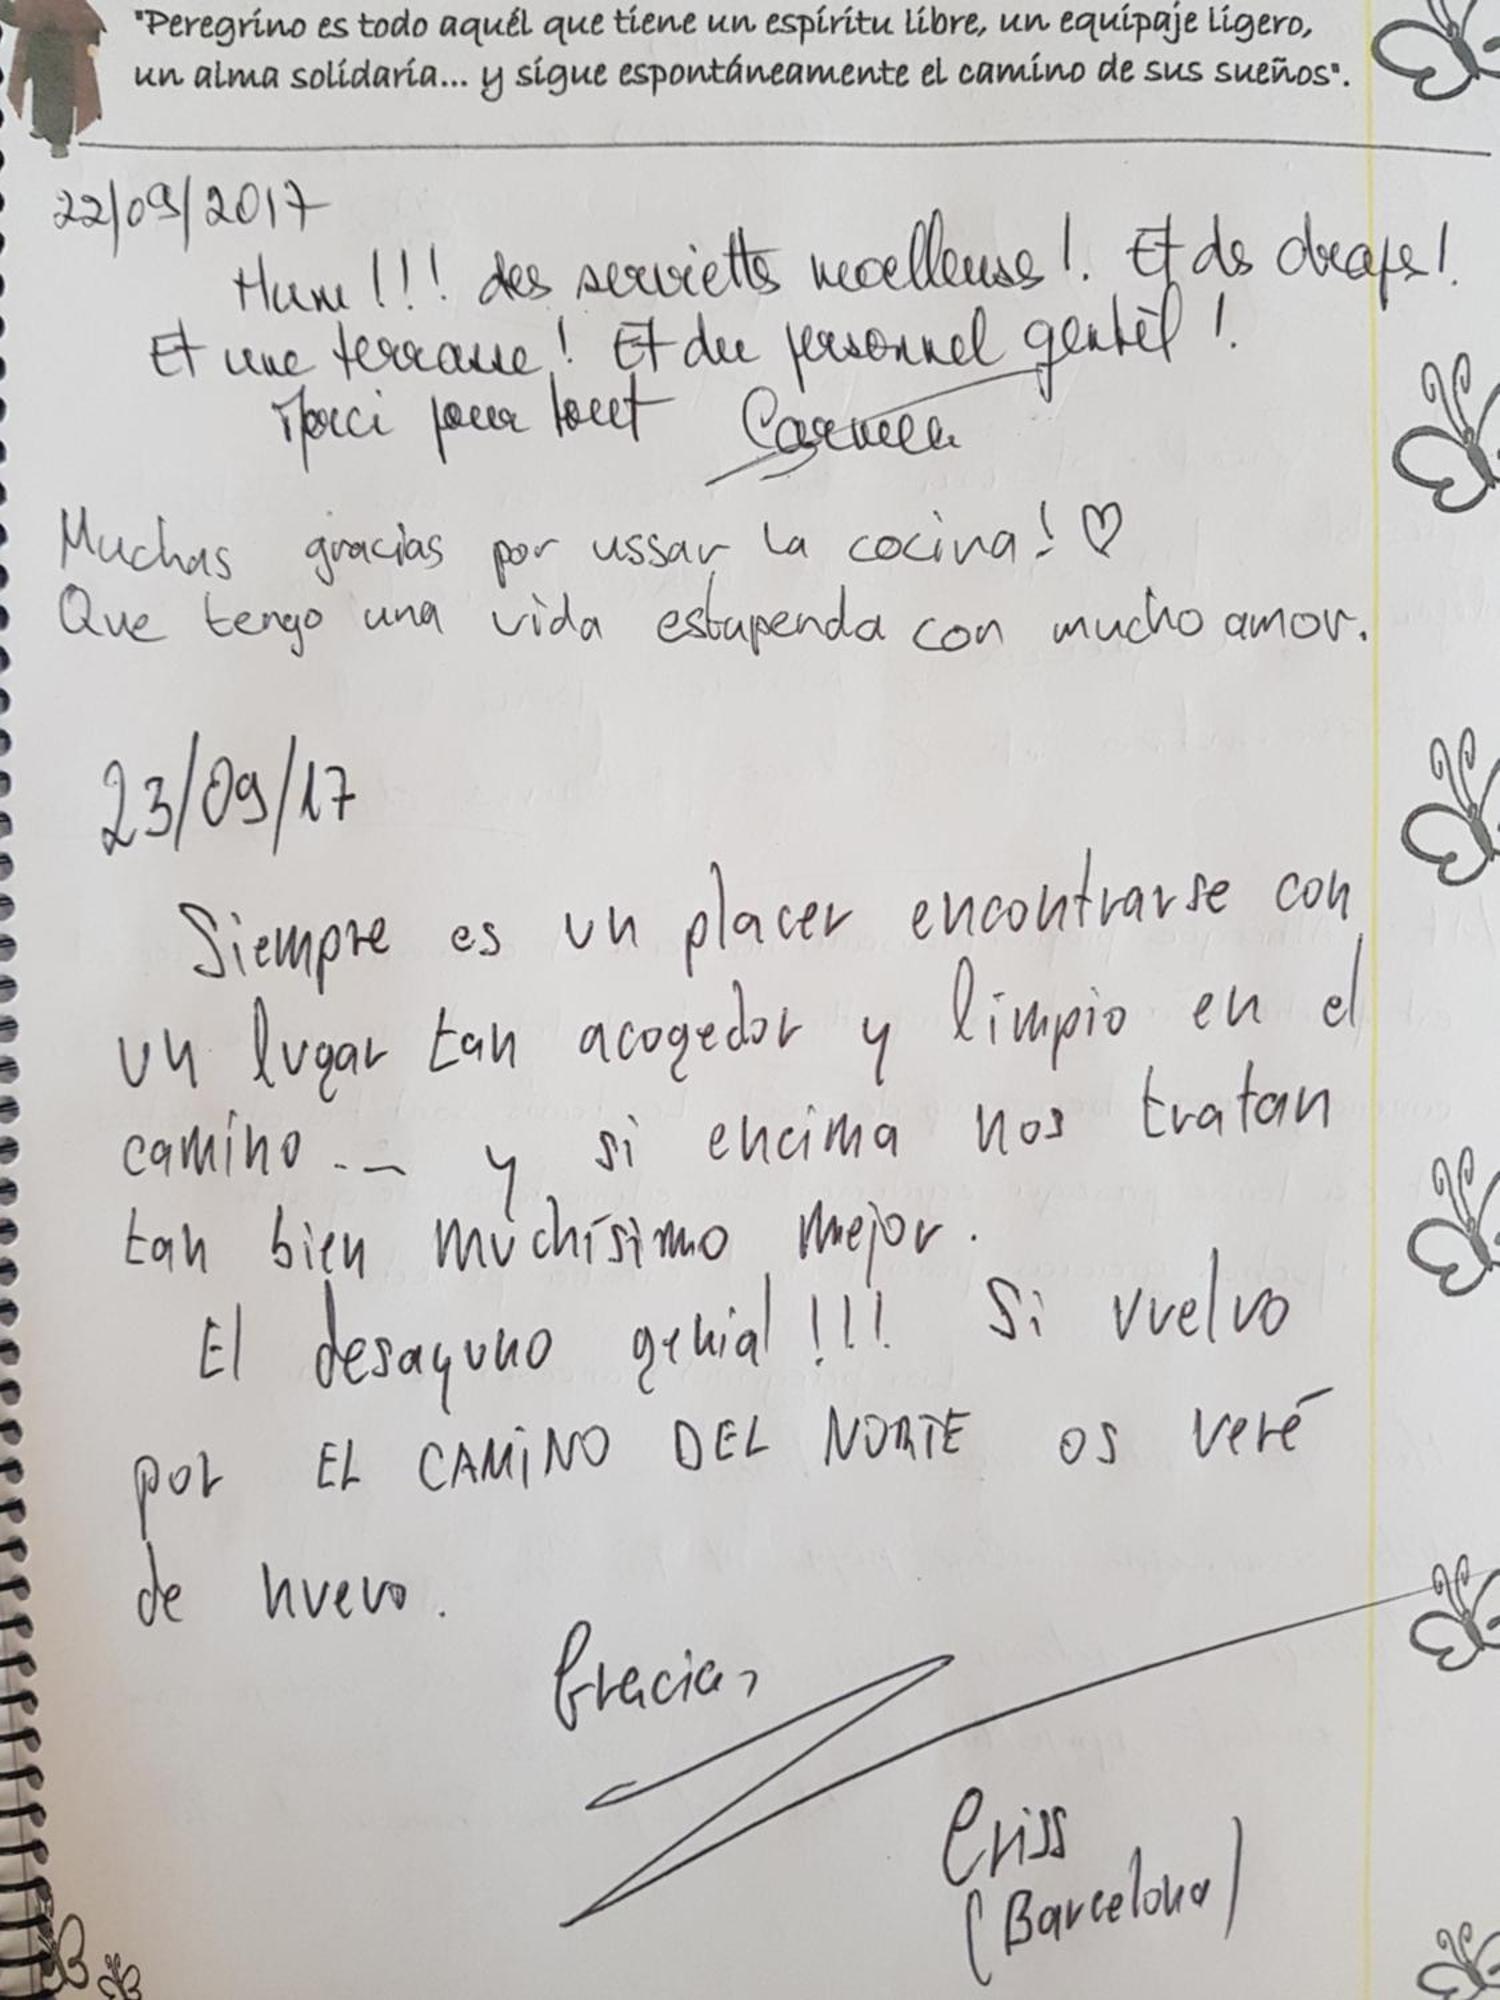 "Peregrino es todo aquél que tiene un espíritu libre, un equipaje ligero,
un alma solidaria... y sigue espontáneamente el camino de sus sueños".
22/09/2017
Hum!!! des serviettes moelleuses! Et des draps!
Et une terrasse! Et du personnel gentil!
Merci pour tout
Muchas gracias por ussar la cocina! ♡
Que tengo una vida estupenda con mucho amor.
23/09/17
Siempre es un placer encontrarse con
un lugar tan acogedor y limpio en el
camino... y si encima nos tratan
tan bien muchísimo mejor.
El desayuno genial!!! Si vuelvo
por EL CAMINO DEL NORTE os veré
de nuevo.
Gracias
Criss
(Barcelona)